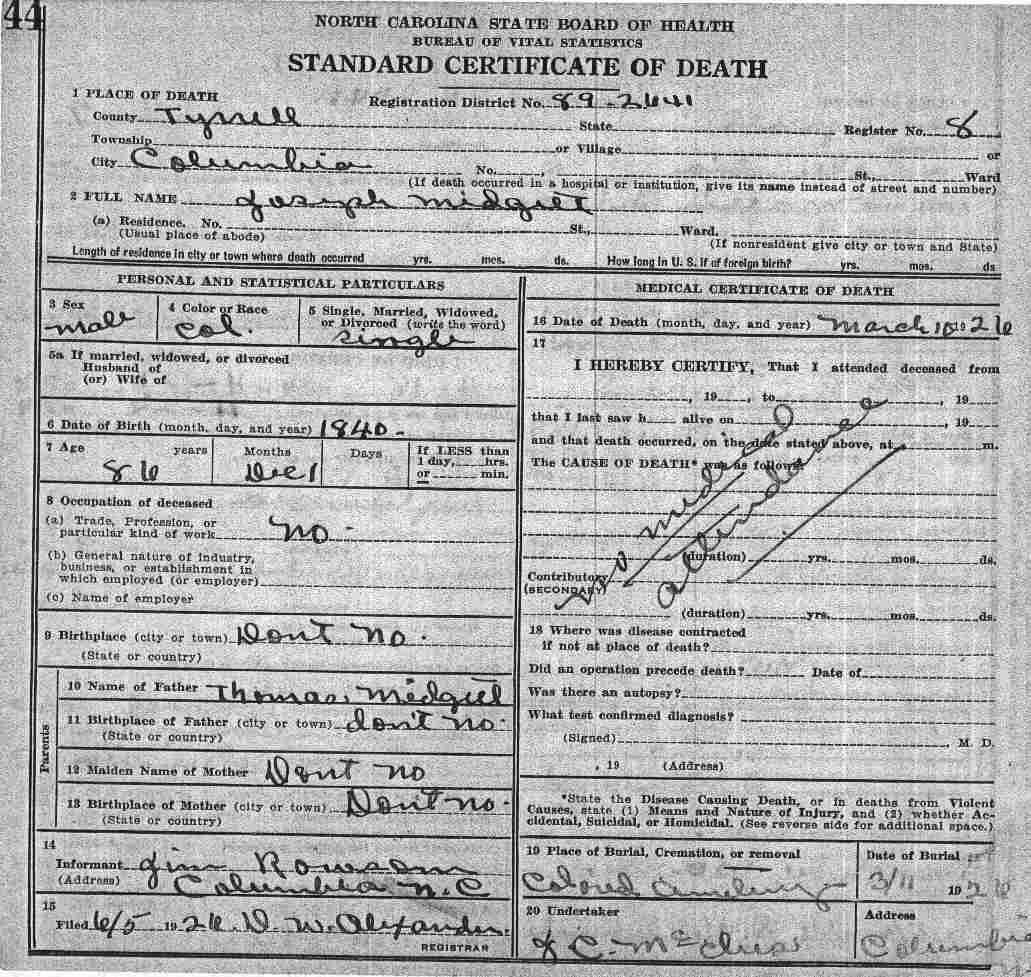 44
NORTH CAROLINA STATE BOARD OF HEALTH
BUREAU OF VITAL STATISTICS
STANDARD CERTIFICATE OF DEATH
1 PLACE OF DEATH
Registration District No. 89-2641
County Tyrrell State Register No. 8
Township or Village or
City Columbia No. , St., Ward
(If death occurred in a hospital or institution, give its name instead of street and number)
2 FULL NAME Joseph Midgett
(a) Residence. No. St., Ward.
(Usual place of abode) (If nonresident give city or town and State)
Length of residence in city or town where death occurred yrs. mos. ds. How long in U. S. if of foreign birth? yrs. mos. ds
PERSONAL AND STATISTICAL PARTICULARS
3 Sex 4 Color or Race 5 Single, Married, Widowed,
or Divorced (write the word)
male col. single
5a If married, widowed, or divorced
Husband of
(or) Wife of
6 Date of Birth (month, day, and year) 1840 -
7 Age years Months Days If LESS than
1 day, hrs.
or min.
86 Dec 1
8 Occupation of deceased
(a) Trade, Profession, or
particular kind of work no -
(b) General nature of industry,
business, or establishment in
which employed (or employer)
(c) Name of employer
9 Birthplace (city or town) Dont no.
(State or country)
Parents
10 Name of Father Thomas Midgett
11 Birthplace of Father (city or town) don't no.
(State or country)
12 Maiden Name of Mother Dont no
13 Birthplace of Mother (city or town) Don't no.
(State or country)
14
Informant Jim Rowsom
(Address) Columbia N.C
15
Filed 6/5 1926 D. W. Alexander
REGISTRAR
MEDICAL CERTIFICATE OF DEATH
16 Date of Death (month, day, and year) March 10 1926
17
I HEREBY CERTIFY, That I attended deceased from
, 19 , to , 19
that I last saw h alive on , 19
and that death occurred, on the date stated above, at m.
The CAUSE OF DEATH* was as follows:
no medical
attendance
(duration) yrs. mos. ds.
Contributory
(SECONDARY)
(duration) yrs. mos. ds.
18 Where was disease contracted
if not at place of death?
Did an operation precede death? Date of
Was there an autopsy?
What test confirmed diagnosis?
(Signed) , M. D.
, 19 (Address)
*State the Disease Causing Death, or in deaths from Violent
Causes, state (1) Means and Nature of Injury, and (2) whether Ac-
cidental, Suicidal, or Homicidal. (See reverse side for additional space.)
19 Place of Burial, Cremation, or removal Date of Burial
Colored Cemetery 3/11 1926
20 Undertaker Address
J C. Columbia